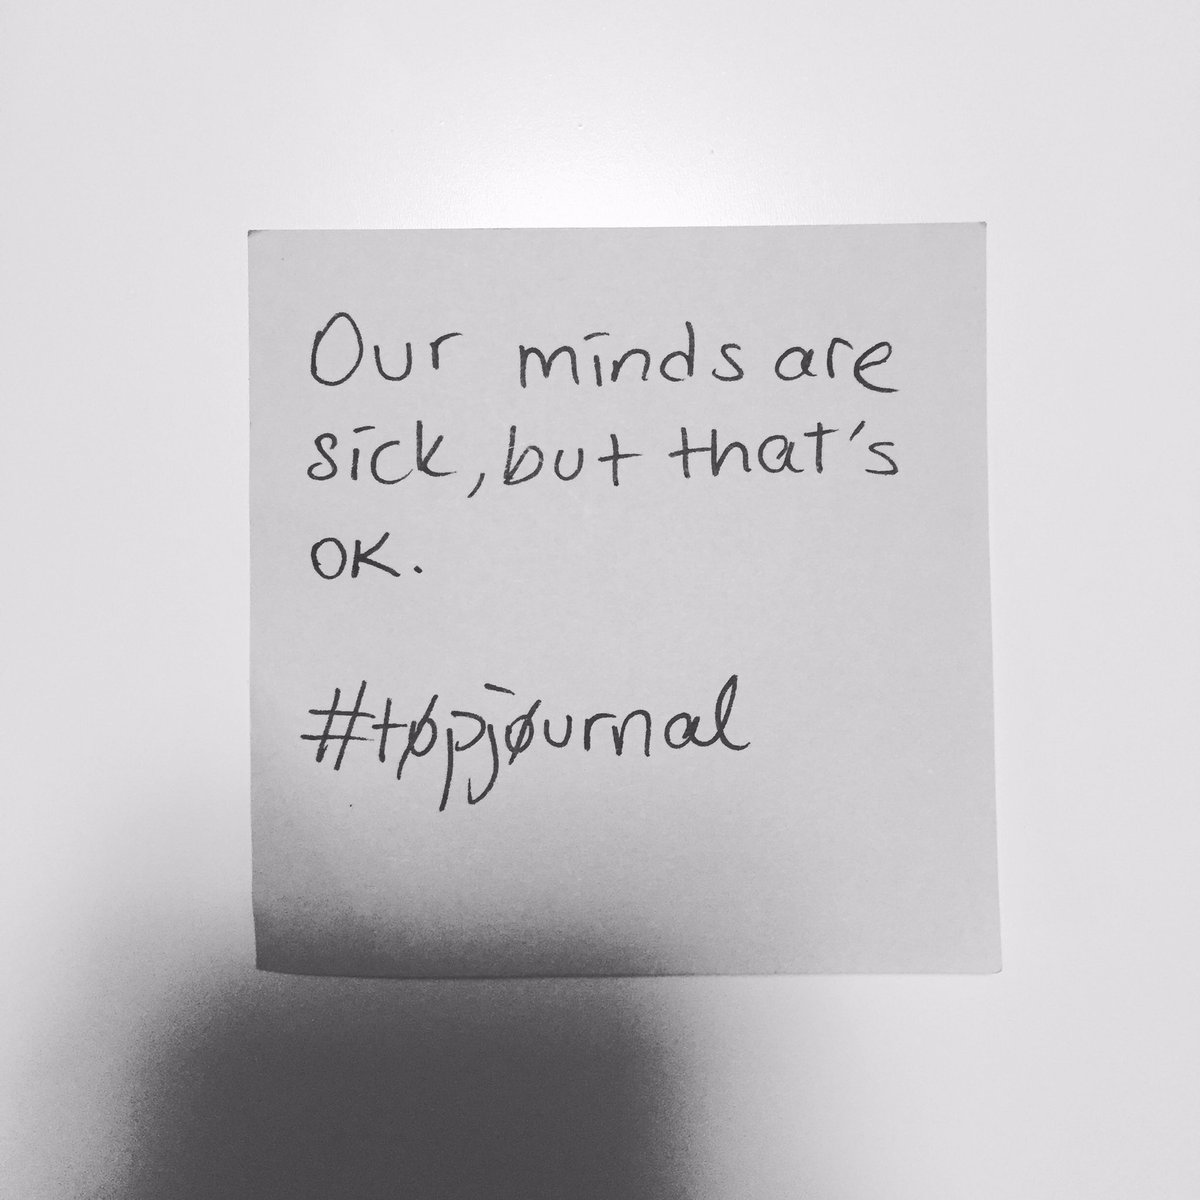 Our minds are
sick, but that's
OK.
#tøpjøurnal